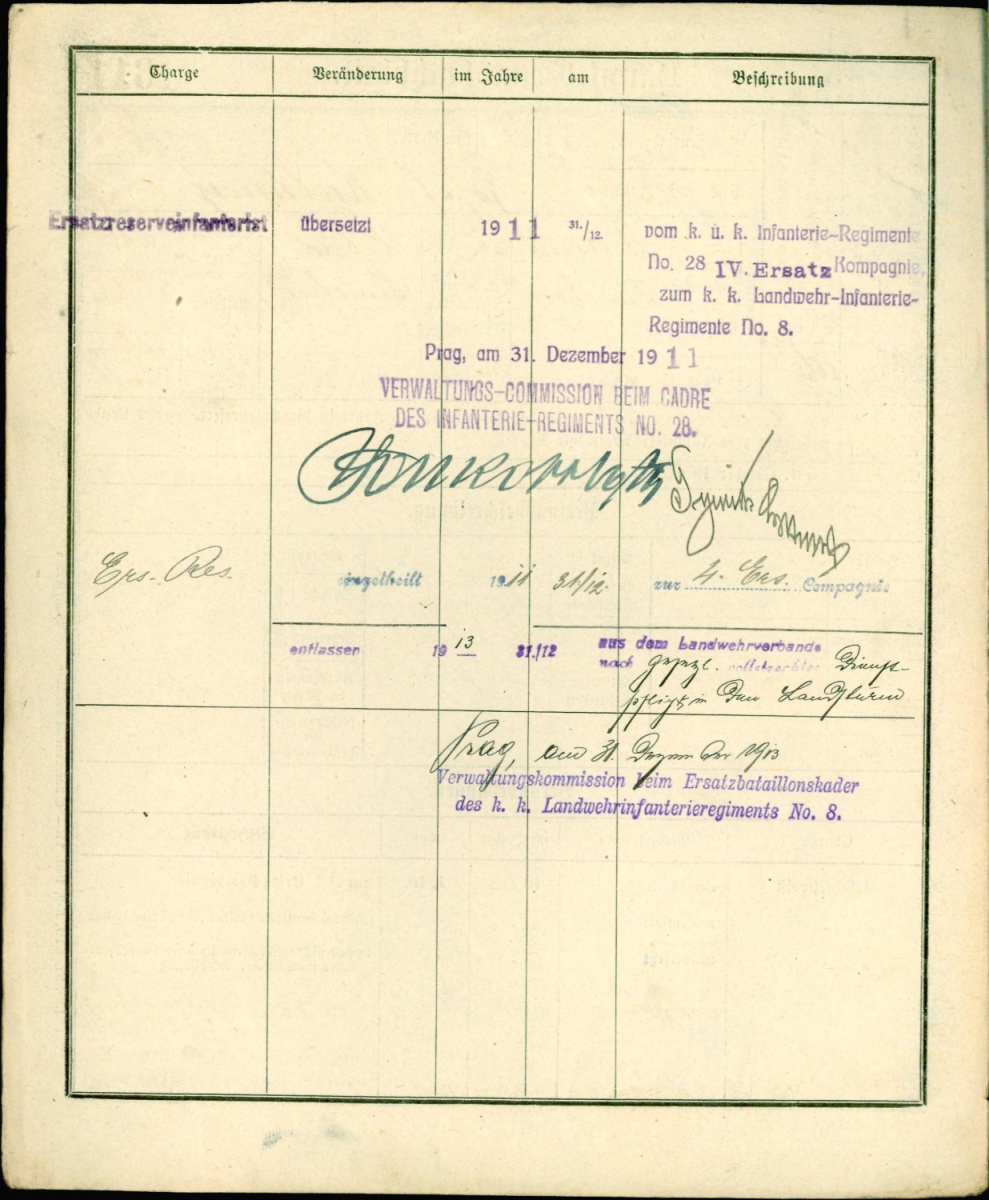 Charge Veränderung im Jahre am Beschreibung
Ersatzreserveinfanterist übersetzt 1911 31./12. vom k. u. k. Infanterie-Regimente
No. 28 IV. Ersatz Kompagnie,
zum k. k. Landwehr-Infanterie-
Regimente No. 8.
Prag, am 31. Dezember 1911
VERWALTUNGS-COMMISSION BEIM CADRE
DES INFANTERIE-REGIMENTS NO. 28.
Ers. Res. eingetheilt 1911 31/12. zur 4. Ers. Compagnie
entlassen 1913 31./12 aus dem Landwehrverbande
nach gesetzl. vollstreckter Dienst-
pflicht in den Landsturm
Prag, am 31. Dezember 1913
Verwaltungskommission beim Ersatzbataillonskader
des k. k. Landwehrinfanterieregiments No. 8.